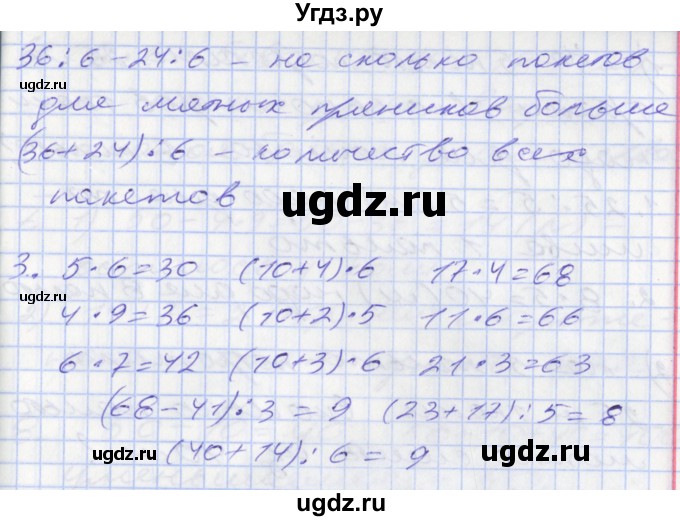 Угдз.ру
36:6-24:6 - на сколько пакетов
ugdz.ru ugdz.ru
для мятных пряников больше
(36+24):6 - количество всех
пакетов
ugdz.ru
ugdz.ru ugdz.ru
3. 5·6=30 (10+4)·6 17·4=68
4·9=36 (10+2)·5 11·6=66
ugdz.ru
6·7=42 (10+3)·6 21·3=63
(68-41):3=9 (23+17):5=8
ugdz.ru
(40+14):6=9
ugdz.ru ugdz.ru
ugdz.ru